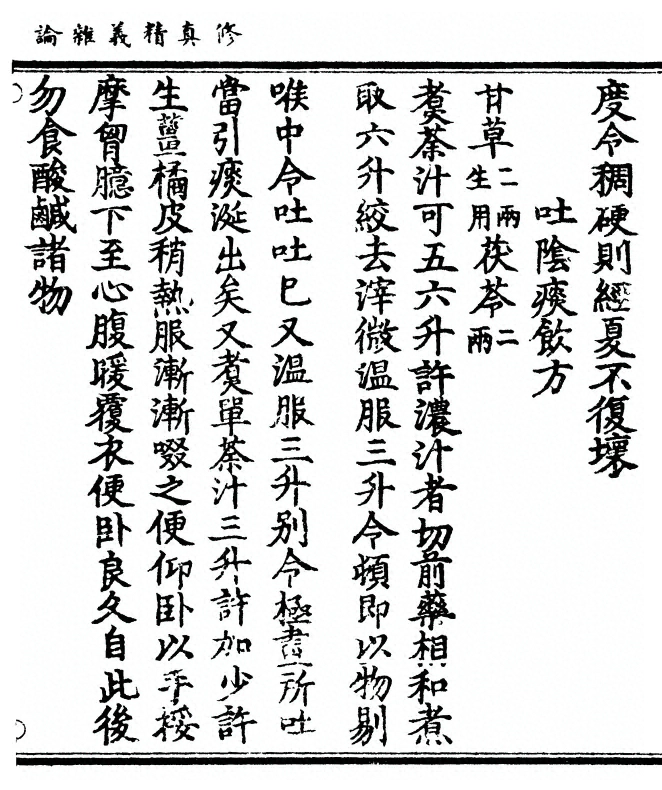 修真精義雜論
度令稠硬則經夏不復壞
吐陰痰飲方
甘草二兩生用茯苓二兩
煑荼汁可五六升許濃汁者切前藥相和煮
取六升絞去滓微温服三升令頓即以物剔
喉中令吐吐巳又温服三升别令極盡所吐
當引痰涎出矣又煑單荼汁三升許加少許
生薑橘皮稍熱服漸漸啜之便仰卧以手挼
摩胷臆下至心腹暖覆衣便卧良久自此後
勿食酸鹹諸物